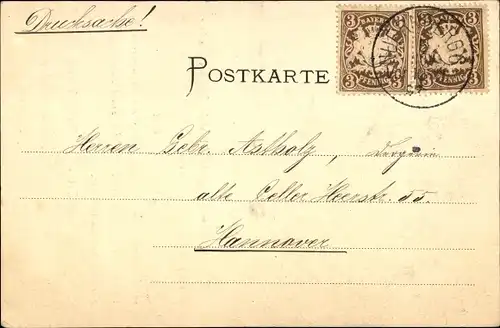 Drucksache!
BAYERN BAYERN
3 3 3 3
PFENNIG PFENNIG
POSTKARTE
Herren Gebr. Astholz,
alte Celler Heerstr. 55.
Hannover